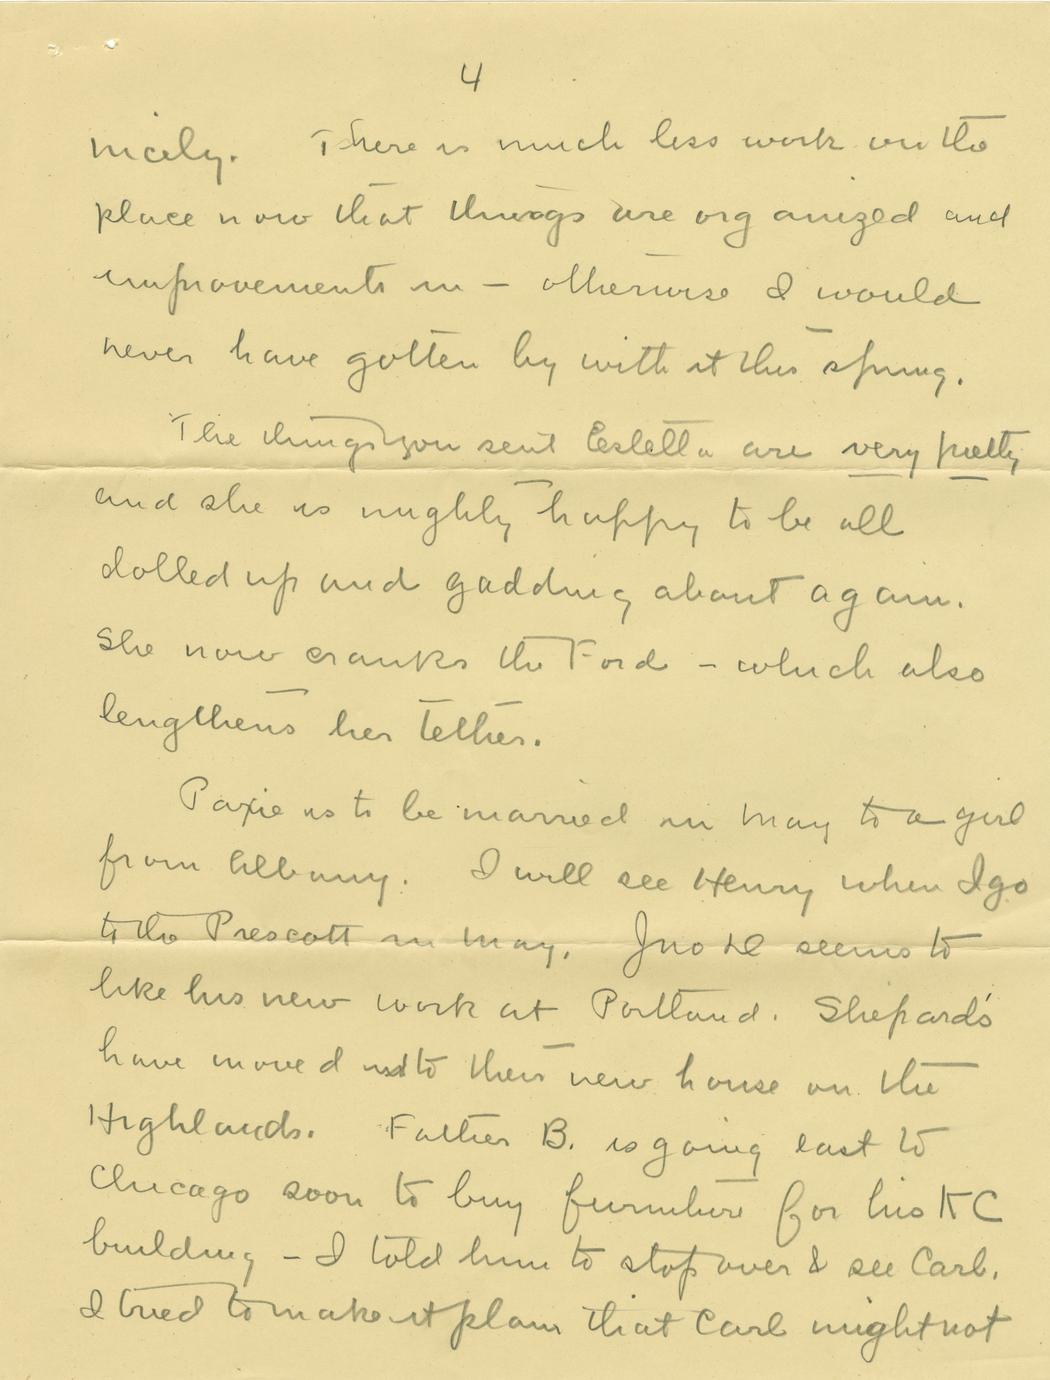 4
nicely. There is much less work on the
place now that things are organized and
improvements in – otherwise I would
never have gotten by with it this spring.
The things you sent Estella are very pretty
and she is mighty happy to be all
dolled up and gadding about again.
She now cranks the Ford – which also
lengthens her tether.
Paxie is to be married in May to a girl
from Albany. I will see Henry when I go
to the Prescott in May. Jno seems to
like his new work at Portland. Shepards
have moved into their new house on the
Highlands. Father B. is going east to
Chicago soon to buy furniture for his KC
building – I told him to stop over & see Carl.
I tried to make it plain that Carl might not